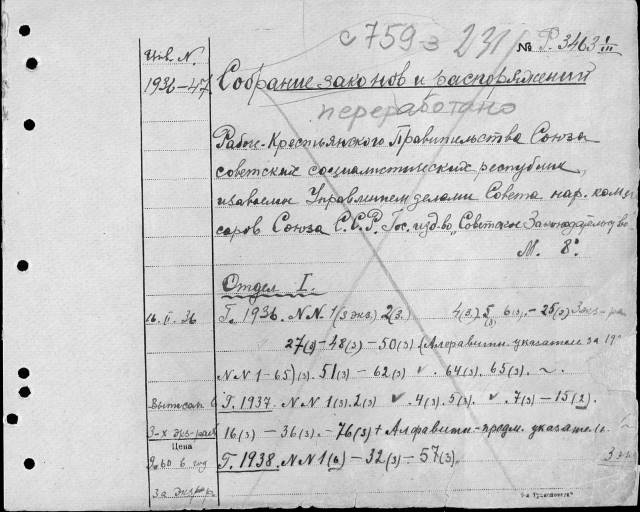 с 759-з 231 № Р. 3463 III
Инв. N.
1936-47 Собрание законов и распоряжений
переработано
Рабоче-Крестьянского Правительства Союза
советских социалистических республик,
издаваемый Управлением делами Совета нар. комис
саров Союза С.С.Р. Гос. изд-во "Советское Законодательство"
М. 8°.
Отдел I.
16. II. 36 Г. 1936. NN. 1(3 экз.) 2(3.) 4(3.) 5(3) 6(3). - 25(3)
27(3)-48(3)-50(3) (Алфавитн. указатели за 19
NN 1-65)(3). 51(3) - 62(3) ✓. 64(3). 65(3).
выписан Г. 1937. NN 1(3). 2(3) ✓ .4(3). 5(3). ✓ .7(3)-15(2).
3-х экз-рах 16(3) - 36(3). -76(3) + Алфавитн-предм. указатели.
Цена
9.60 в год Г. 1938. NN 1(6)-32(3)-57(3).
за экз